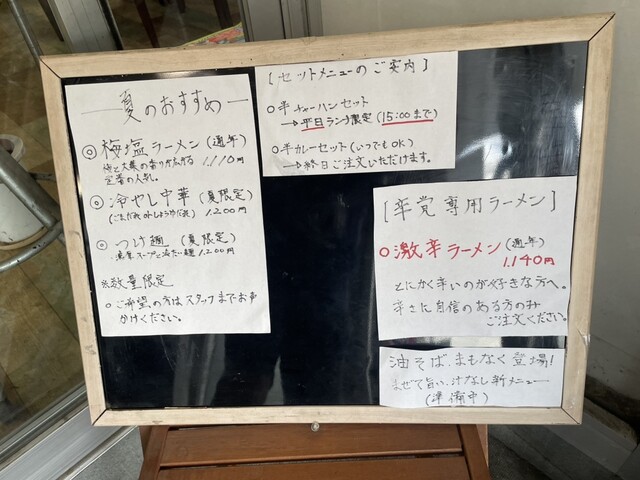 夏のおすすめ
◎梅塩ラーメン(通年)
梅と大葉の香り広がる 1.110円
定番の人気。
◎冷やし中華(夏限定)
(ごまだれorしょうゆだれ) 1.200円
◎つけ麺(夏限定)
濃厚スープと冷たい麺 1.200円
※数量限定
○ご希望の方はスタッフまでお声
かけください。
[セットメニューのご案内]
○半チャーハンセット
→平日ランチ限定(15:00まで)
○半カレーセット(いつでもOK)
→終日ご注文いただけます。
[辛党専用ラーメン]
○激辛ラーメン(通年)
1.140円
とにかく辛いのが好きな方へ。
辛さに自信のある方のみ
ご注文ください。
油そば、まもなく登場!
まぜて旨い、汁なし新メニュー
(準備中)